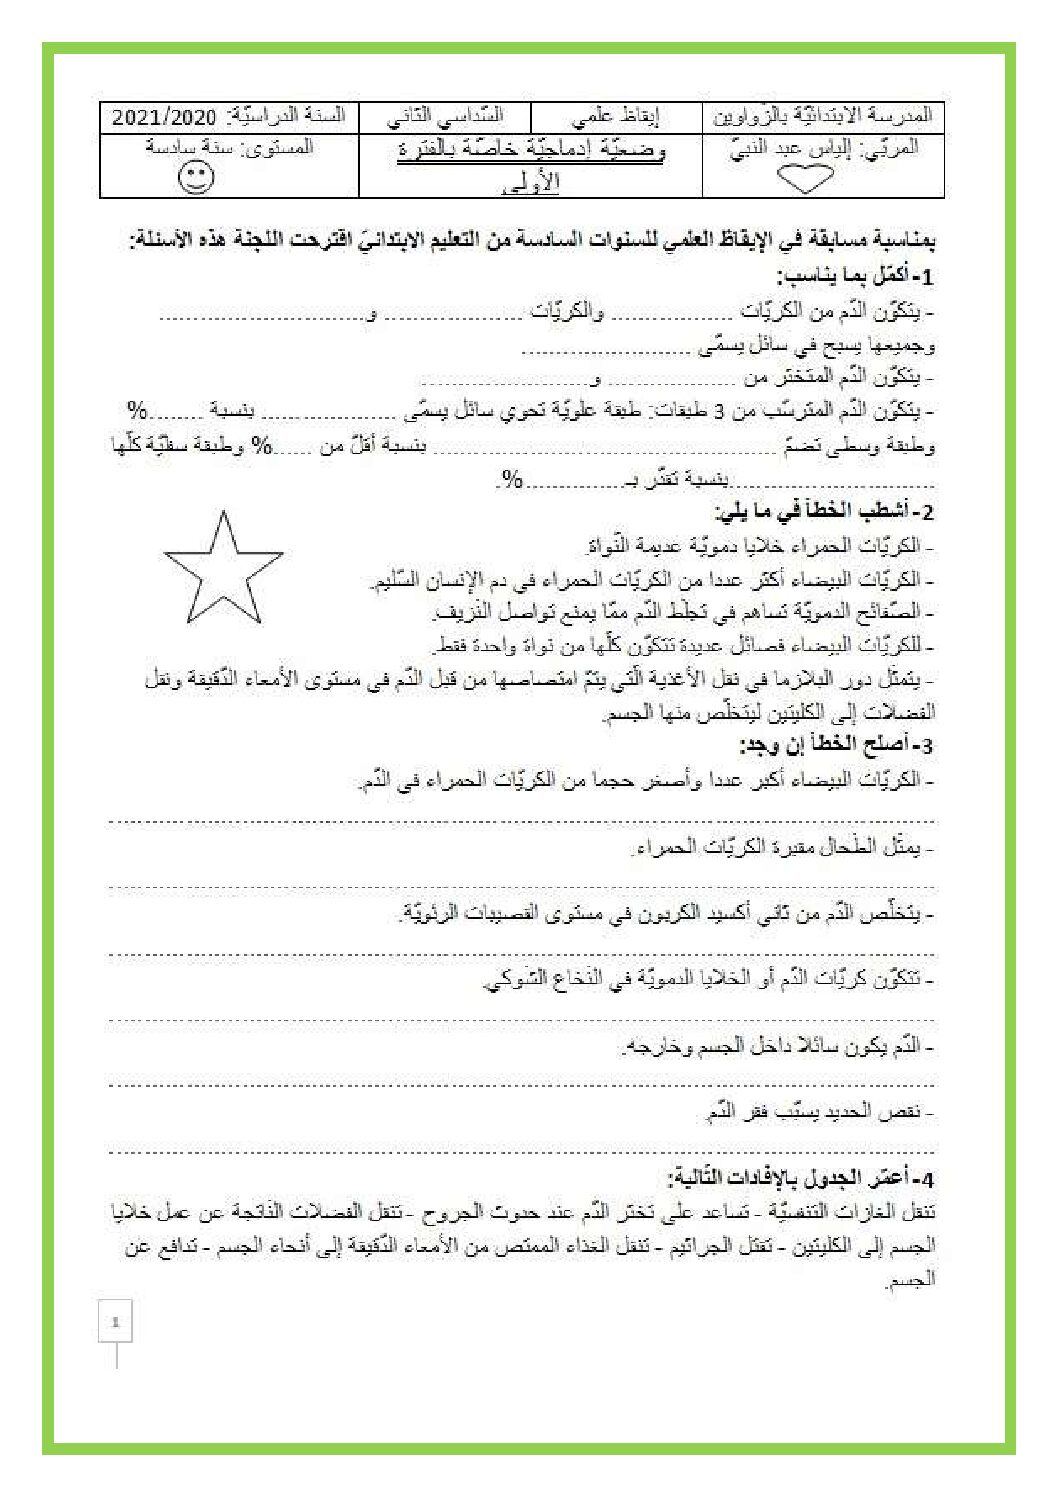 المدرسة الابتدائيّة بالزّواوين
إيقاظ علمي
السّداسي الثاني
السنة الدراسيّة: 2021/2020
المربّي: إلياس عبد النبيّ
وضعيّة إدماجيّة خاصّة بالفترة
الأولى
المستوى: سنة سادسة
بمناسبة مسابقة في الإيقاظ العلمي للسنوات السادسة من التعليم الابتدائيّ اقترحت اللجنة هذه الأسئلة:
1- أكمّل بما يناسب:
- يتكوّن الدّم من الكريّات .................. والكريّات .................... و..............................
وجميعها يسبح في سائل يسمّى .........................
- يتكوّن الدّم المتخثر من ................... و.........................
- يتكوّن الدّم المترسّب من 3 طبقات: طبقة علويّة تحوي سائل يسمّى .................... بنسبة ........%
وطبقة وسطى تضمّ .................................................. بنسبة أقلّ من ......% وطبقة سفليّة كلّها
..............................بنسبة تقدّر بـ...............%.
2- أشطب الخطأ في ما يلي:
- الكريّات الحمراء خلايا دمويّة عديمة النّواة.
- الكريّات البيضاء أكثر عددا من الكريّات الحمراء في دم الإنسان السّليم.
- الصّفائح الدمويّة تساهم في تجلّط الدّم ممّا يمنع تواصل النّزيف.
- للكريّات البيضاء فصائل عديدة تتكوّن كلّها من نواة واحدة فقط.
- يتمثّل دور البلازما في نقل الأغذية الّتي يتمّ امتصاصها من قبل الدّم في مستوى الأمعاء الدّقيقة ونقل
الفضلات إلى الكليتين ليتخلّص منها الجسم.
3- أصلح الخطأ إن وجد:
- الكريّات البيضاء أكبر عددا وأصغر حجما من الكريّات الحمراء في الدّم.
- يمثّل الطّحال مقبرة الكريّات الحمراء.
- يتخلّص الدّم من ثاني أكسيد الكربون في مستوى القصيبات الرئويّة.
- تتكوّن كريّات الدّم أو الخلايا الدمويّة في النّخاع الشّوكي.
- الدّم يكون سائلا داخل الجسم وخارجه.
- نقص الحديد يسبّب فقر الدّم.
4- أعمّر الجدول بالإفادات التّالية:
تنقل الغازات التنفسيّة - تساعد على تخثر الدّم عند حدوث الجروح - تنقل الفضلات النّاتجة عن عمل خلايا
الجسم إلى الكليتين - تقتل الجراثيم - تنقل الغذاء الممتص من الأمعاء الدّقيقة إلى أنحاء الجسم - تدافع عن
الجسم.
1